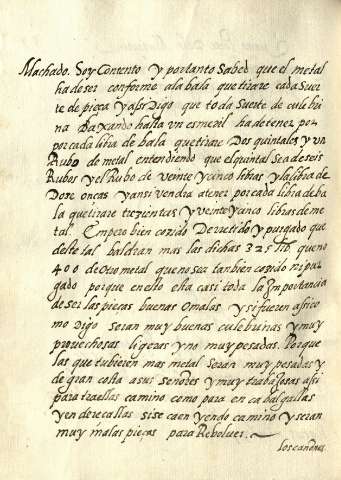 Machado. Soy Contento y portanto Sabed que el metal
ha de ser conforme ala bala que tirare cada Suer
te de pieça y assi Digo que toda Suerte de cule bri
na Baxando hasta un esmeril ha de tener por
por cada libra de bala que tirare Dos quintales y vn
Rubo de metal entendiendo que el quintal Sea de seis
Rubos y el Rubo de veinte y cinco libras y la libra de
Doze onças y ansi vendra a tener por cada libra de ba
la que tirare trezientas y veinte y cinco libras de me
tal. Empero bien cozido Derretido y purgado que
deste tal baldran mas las dichas 325 lib. que no
400 de otro metal que no sea tan bien cozido ni pur
gado porque en esto esta casi toda la Importancia
de ser las pieças buenas Omalas y si fueren assi co
mo Digo seran muy buenas culebrinas y muy
prouechosas ligeras y no muy pesadas. Porque
las que tubieren mas metal seran muy pesadas y
de gran costa a sus señores y muy trabajosas assi
para traellas camino como para en cabalgallas
y en derecallas si se caen yendo camino y seran
muy malas pieças para Reboluer.
los cañones